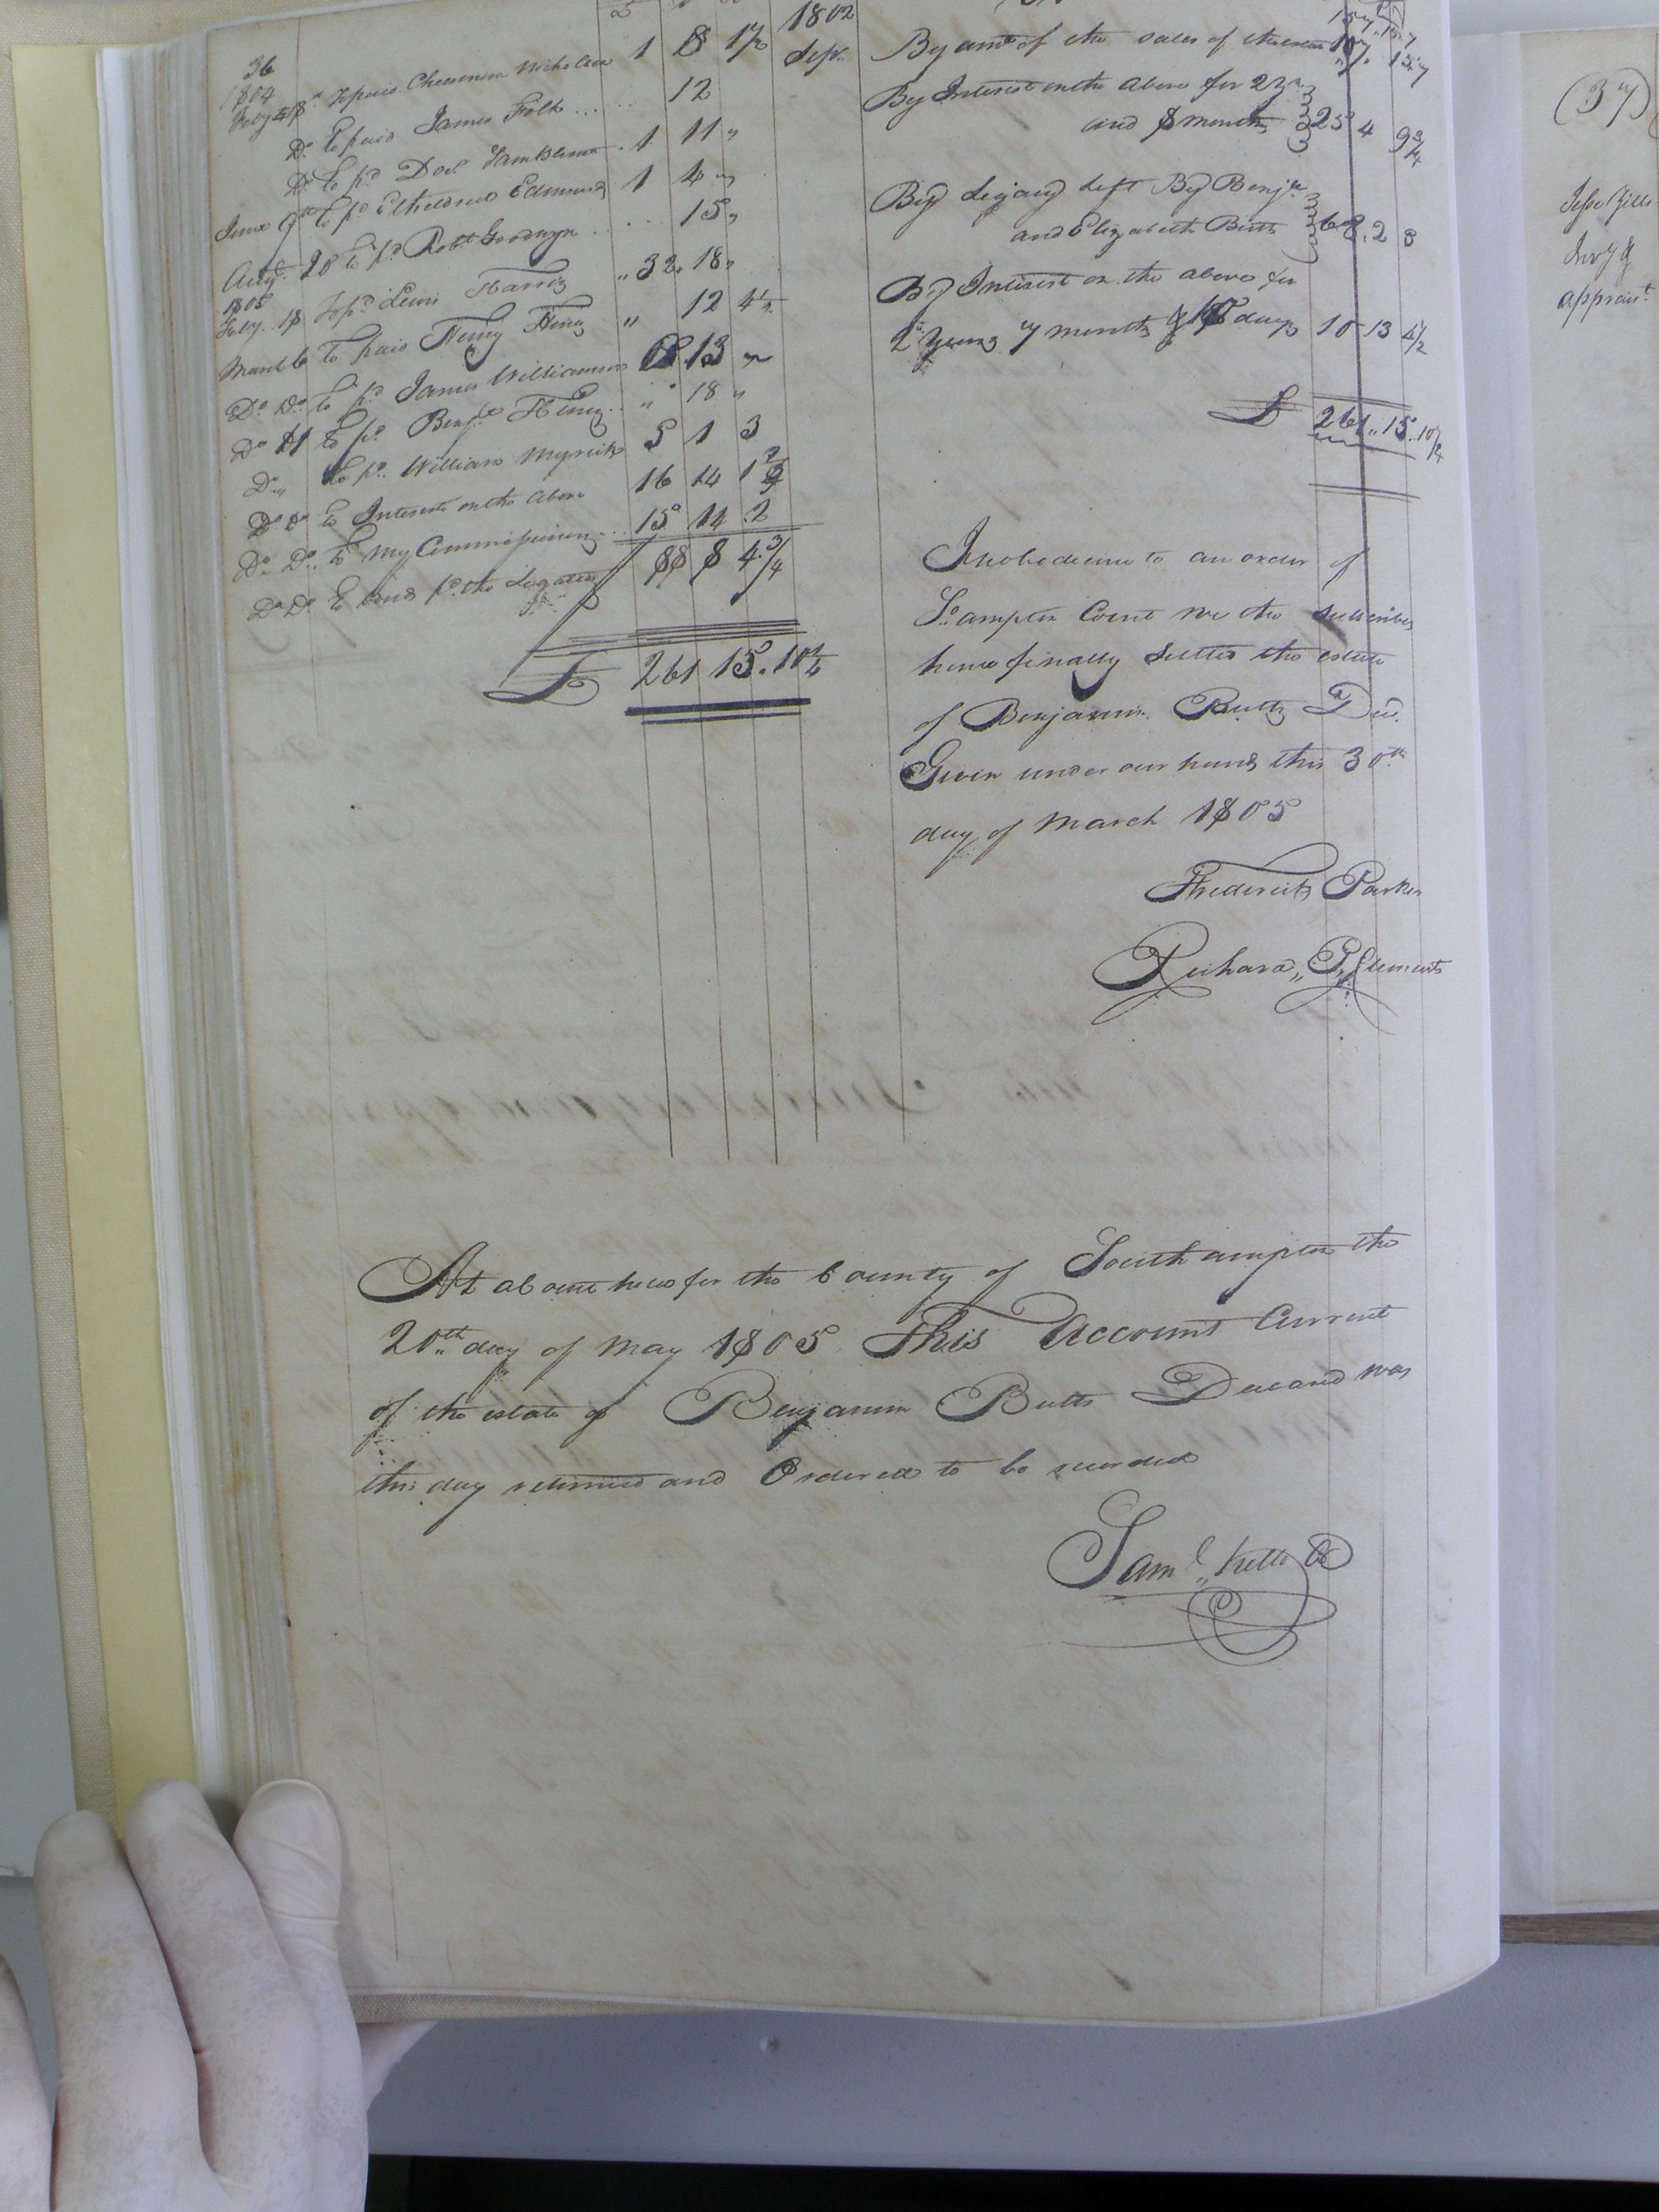 36
1804
Feby
To paid Nicholson 1 8 1 1/2
Do To paid James 12
Do To pd 1 11 "
June 9th to pd Etheldred Edmunds 1 4 "
20 to pd Robt Goodwyn 15 "
1805
Feby. 18 To pd Lewis Harris " 32 " 18 "
March 6 to paid Henry " 12 4 1/2
Do Do to pd James Williamson 13 "
Do 11 to pd Benja " 18 "
Do " To pd William Myrick 5 1 3
Do Do to Interest on the above 16 14 1
Do Do to My Commissions 15 14 2
Do Do To pd the Legatees 88 8 4 3/4
£ 261 15 " 10 1/4
1802
Sepr. By amt of the sales of 157 " 15 " 7
157 15 7
By Interest on the above for 2 yrs
and 8 months 25 4 9 3/4
By Legacy left By Benja
and Elizabeth Butts 68 " 2 3
By Interest on the above for
2 Years 7 months & 10 days 10 13 4 1/2
£ 261 " 15 " 10 1/4
In obedience to an order of
So. ampton Court we the subscribers
have finally settled the estate
of Benjamin Butts Decd.
Given under our hands this 30th
day of March 1805
Frederick Parker
Richard " P. Clements
At a Court held for the County of Southampton the
20th day of May 1805 This Account Current
of the estate of Benjamin Butts Deceased was
this day returned and Ordered to be recorded
Saml " Kello CC
(37)
Jesse
Invy &
appraist